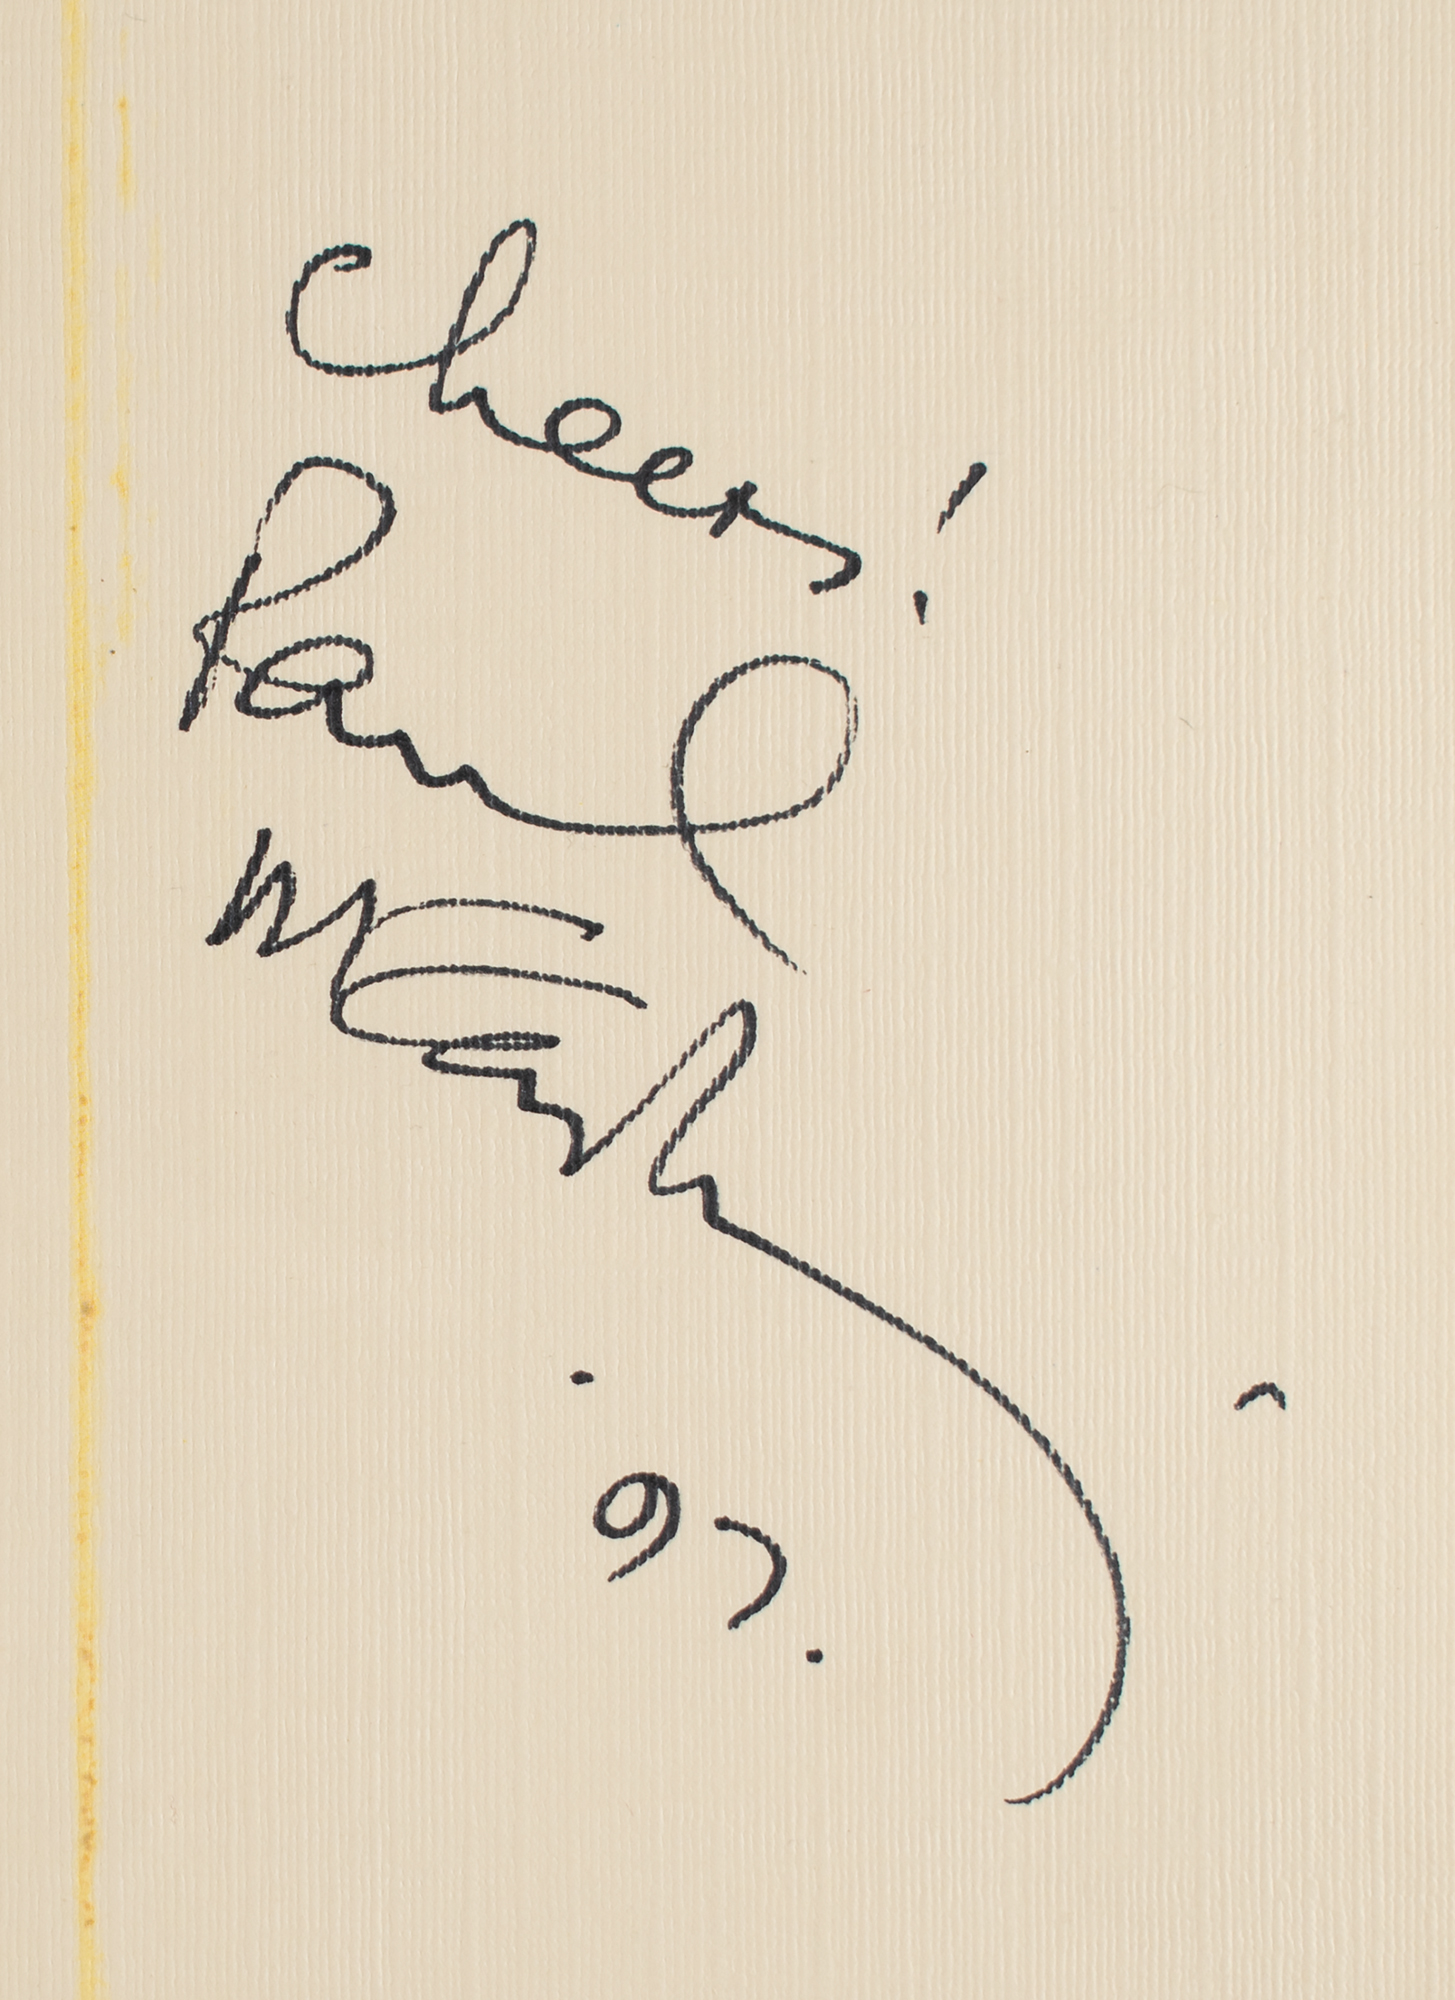 Cheers!
Paul
McCartney
. 97.